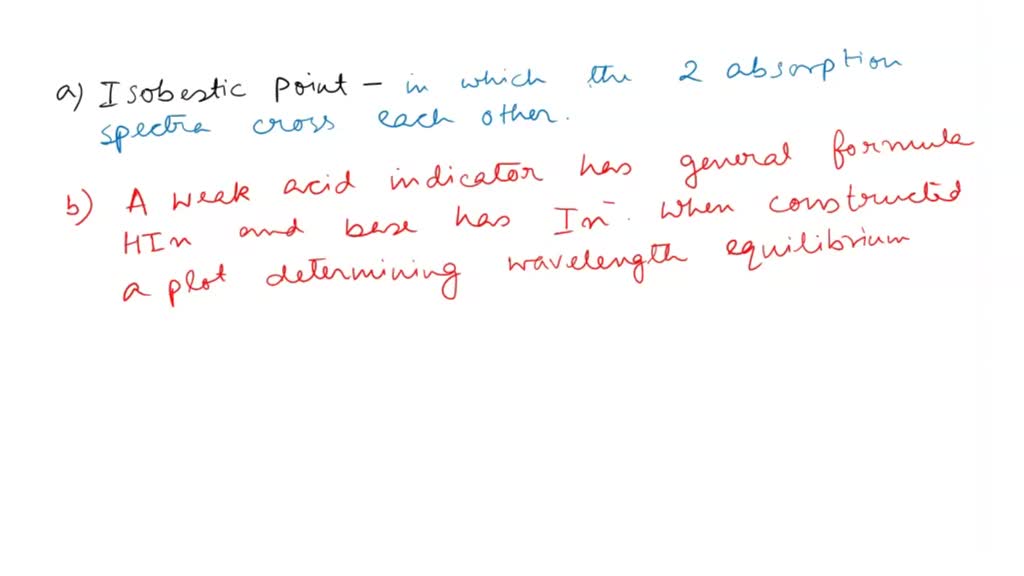 a) Isobestic point - in which the 2 absorption
spectra cross each other.
b) A weak acid indicator has general formula
HIn and base has In⁻. When constructed
a plot determining wavelength equilibrium